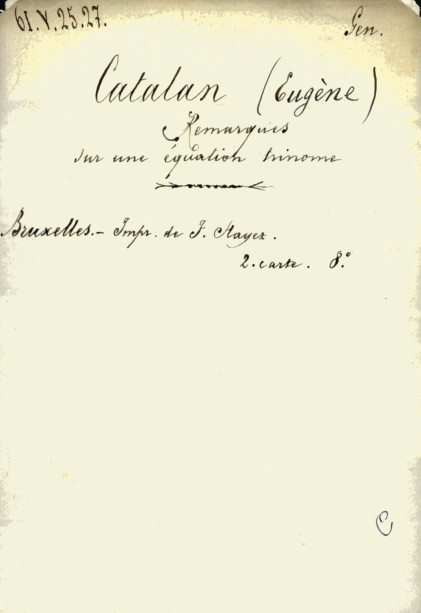 61.V.25.27.
Gen.
Catalan (Eugène)
Remarques
sur une équation trinome
Bruxelles. - Impr. de F. Hayez.
2. carte. 8.°
C